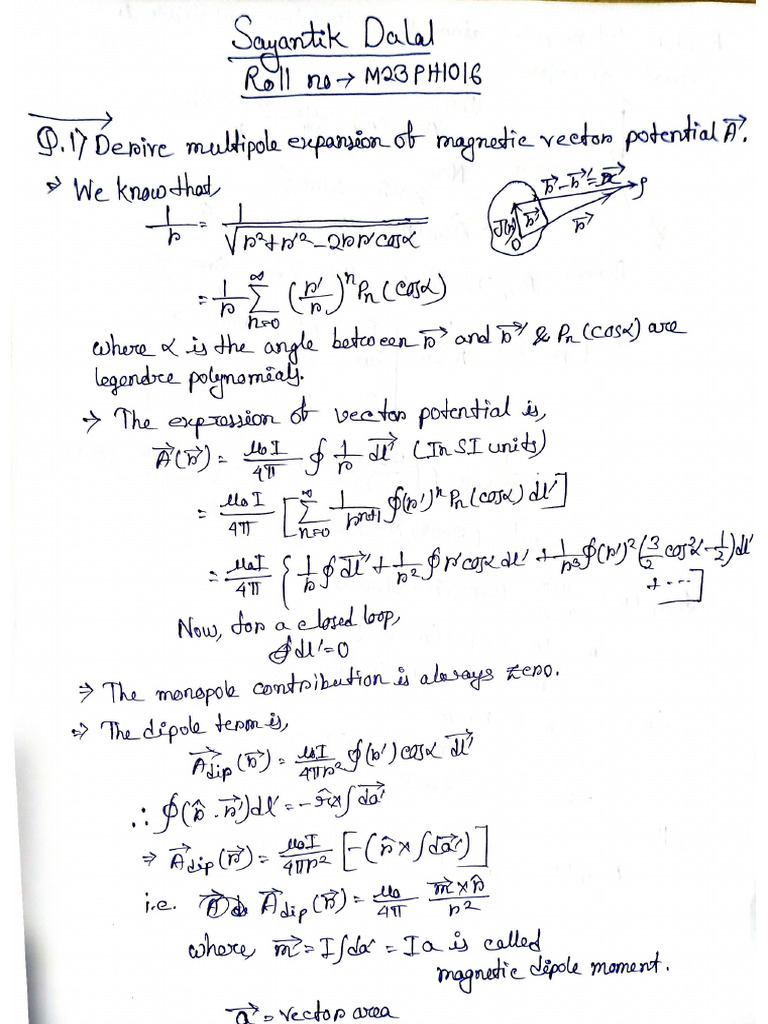 Sayantik Dalal
Roll no → M23PH1016
Q.1) Derive multipole expansion of magnetic vector potential A⃗.
⇒ We know that,
1/r = 1/√(r²+r'²-2rr'cosα)
r⃗-r⃗'=r⃗ P
J(r') r⃗' r⃗
O
= 1/r ∑_{n=0}^{∞} (r'/r)ⁿ Pₙ(cosα)
where α is the angle between r⃗ and r⃗' & Pₙ(cosα) are
legendre polynomials.
→ The expression of vector potential is,
A⃗(r⃗) = μ₀I/4π ∮ 1/r dl⃗' (In SI units)
= μ₀I/4π [∑_{n=0}^{∞} 1/rⁿ⁺¹ ∮(r')ⁿ Pₙ(cosα) dl']
= μ₀I/4π { 1/r ∮dl⃗' + 1/r² ∮r'cosα dl' + 1/r³ ∮(r')² (3/2 cos²α - 1/2) dl'
+ ---]
Now, for a closed loop,
∮dl'=0
⇒ The monopole contribution is always zero.
⇒ The dipole term is,
A⃗dip(r⃗) = μ₀I/4πr² ∮(r') cosα dl⃗'
∴ ∮(r̂.r⃗')dl' = -r̂×∫da⃗'
⇒ A⃗dip(r⃗) = μ₀I/4πr² [-(r̂×∫da⃗')]
i.e. A⃗dip(r⃗) = μ₀/4π m⃗×r̂/r²
where, m⃗ = I∫da' = Ia is called
magnetic dipole moment.
a⃗ = vector area